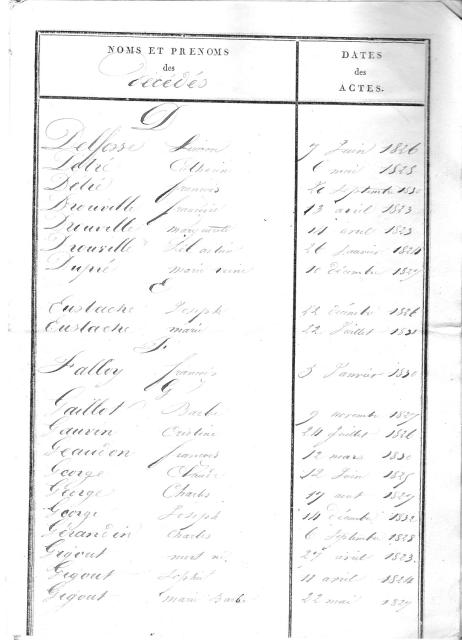 NOMS ET PRENOMS
des
Décédés
DATES
des
ACTES.
D
Delfosse Simon 7 Juin 1826
Catherin 6 mai 1828
Détré francois 26 Septembre 1830
Drouville françois 13 avril 1823
Drouville marguerite 11 avril 1823
Drouville Sébastien 26 Janvier 1824
Dupré marie reine 10 décembre 1827
E
Eustache Joseph 12 décembre 1826
Eustache marie 22 Juillet 1831
F
Falloy françois 3 Janvier 1830
G
Gaillot Barbe 9 novembre 1827
Gauvin Cristine 24 Juillet 1826
Geaudon francois 12 mars 1830
George Claude 12 Juin 1825
George Charles 17 aout 1827
George Joseph 14 décembre 1832
Gérardin Charles 6 Septembre 1828
Gigout mort né 27 avril 1823
Gigout Sophie 11 avril 1824
Gigout marie Barbe 22 mai 1827